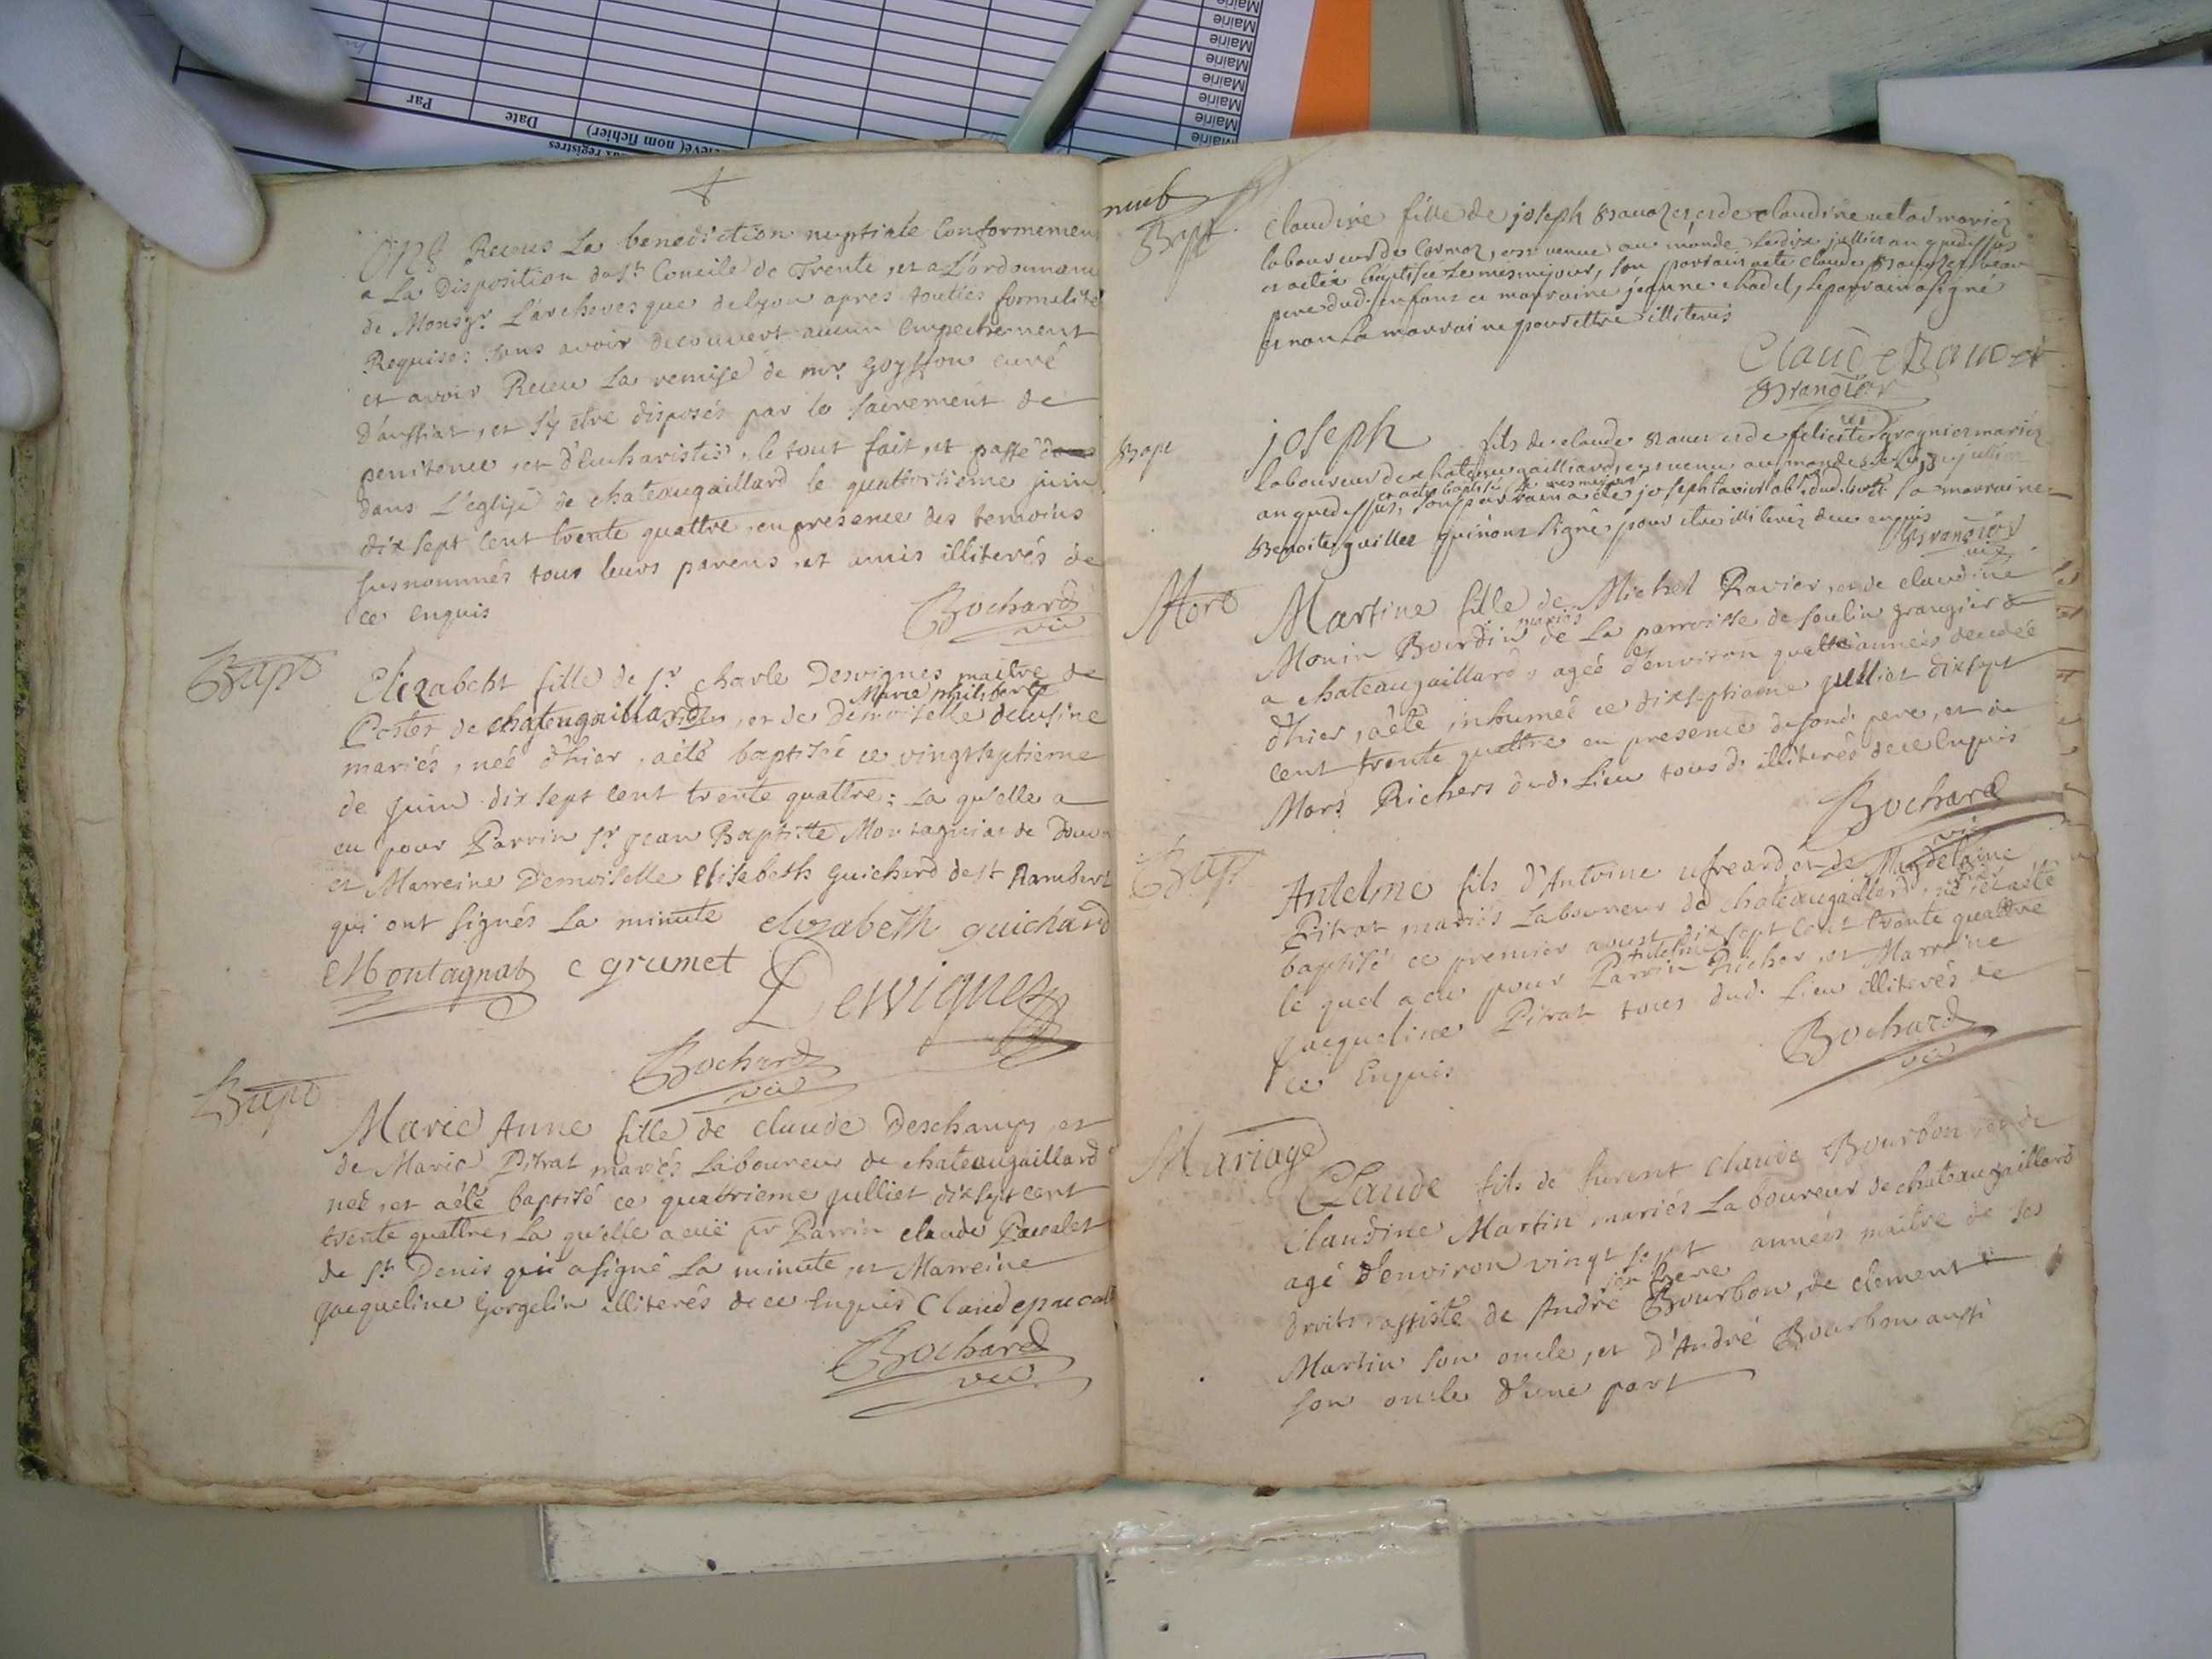 Mairie
Mairie
Mairie
Mairie
Mairie
Mairie
Mairie
Par
Date
(nom fichier)
registres
Ont Receus La benediction nuptiale Conformemen
a La Disposition du st Concile de Trente, et a L'ordonnance
de Monsgr L'archevesque de lyon apres toutes formalité
Requises sans avoir decouvert aucun empechement
et avoir Receu La remise de mr Goyffon curé
d'ansfiat, et s'y etre disposés par le sacrement de
penitence, et d'Eucharistie, le tout fait, et passé
dans L'eglise de chateaugaillard le quattorsieme juin
dix sept cent trente quattre, en presence des temoins
susnommés tous leurs parens, et amis illiterés de
ce enquis
Bochard
vic
Bapt
Elizabeht fille de sr charle Desvignes maitre de
Marie philiberte
Postes de chateaugaillard, et de Demoiselle delusine
mariés, neé d'hier, aété baptisée ce vingtseptieme
de Juin dix sept cent trente quattre; La qu'elle a
eu pour Parrin sr Jean Baptiste Montagniat de
et Marreine Demoiselle Elisabeth Guichard de st Rambert
qui ont signés La minute elizabeth guichard
Montagnat c grumet
Dewignes
Bochard
vic
Bapt
Marie Anne fille de claude Deschamps, et
de Marie Pitrat mariés Laboureur de chateaugaillard
neé, et aété baptisé ce quattrieme Julliet dix sept cent
trente quattre, La qu'elle a eüe pr Parrin claude Pacalet
de st Denis qui a signé La minute, et Marreine
Jacqueline Gorgelin illiterés de ce enquis Claude pacalet
Bochard
vic
Bapt
Claudine fille de joseph et de claudine mariés
laboureur de Cormoz, est venue au monde Le dix juillet an que dessus
et a été baptisée Le mesme jour, son parrain a été claude
pere dud. enfant et marraine jeanne chadel, Le parrain a signé
et non La marraine pour estre illiterés
Claude
Grangier
Bapt
joseph fils de claude et de felicité mariés
laboureur de chateau gailliard, est venu au monde le juillet
et a été baptisé le mesme jour
an que dessus, son parrain a été joseph tavier dud. lieu La marraine
Benoite guillet qui n'ont signé pour etre illiterés de ce enquis
Grangier
vic
Mort
Martine fille de Michel Ravier, et de claudine
mariés
Monin Bourdin de La parroisse de soulin grangier
a chateaugaillard, ageé d'environ quattre années decedée
d'hier, aété inhumeé ce dixseptieme Julliet dix sept
cent trente quattre en presence de sond. pere, et de
Mors Richers dud. Lieu tous d. illiterés de ce Enquis
Bochard
vic
Bapt
Antelme fils d'Antoine ufreard, et de Magdelaine
Pitrat mariés Laboureur de chateaugaillard, né et aété
baptisé ce premier aoust dix sept cent trente quattre
antelme
le quel a eu pour Parrin Richer, et Marreine
Jacqueline Pitrat tous dud. Lieu illiterés de
ce Enquis
Bochard
vic
Mariage
Claude fils de furent claude Bourbon, et de
Claudine Martin mariés Laboureur de chateaugaillard
agé d'environ vingt sept années maitre de ses
son frere
droits, assisté de André Bourbon, de clement
Martin son oncle, et d'André Bourbon aussi
son oncle d'une part